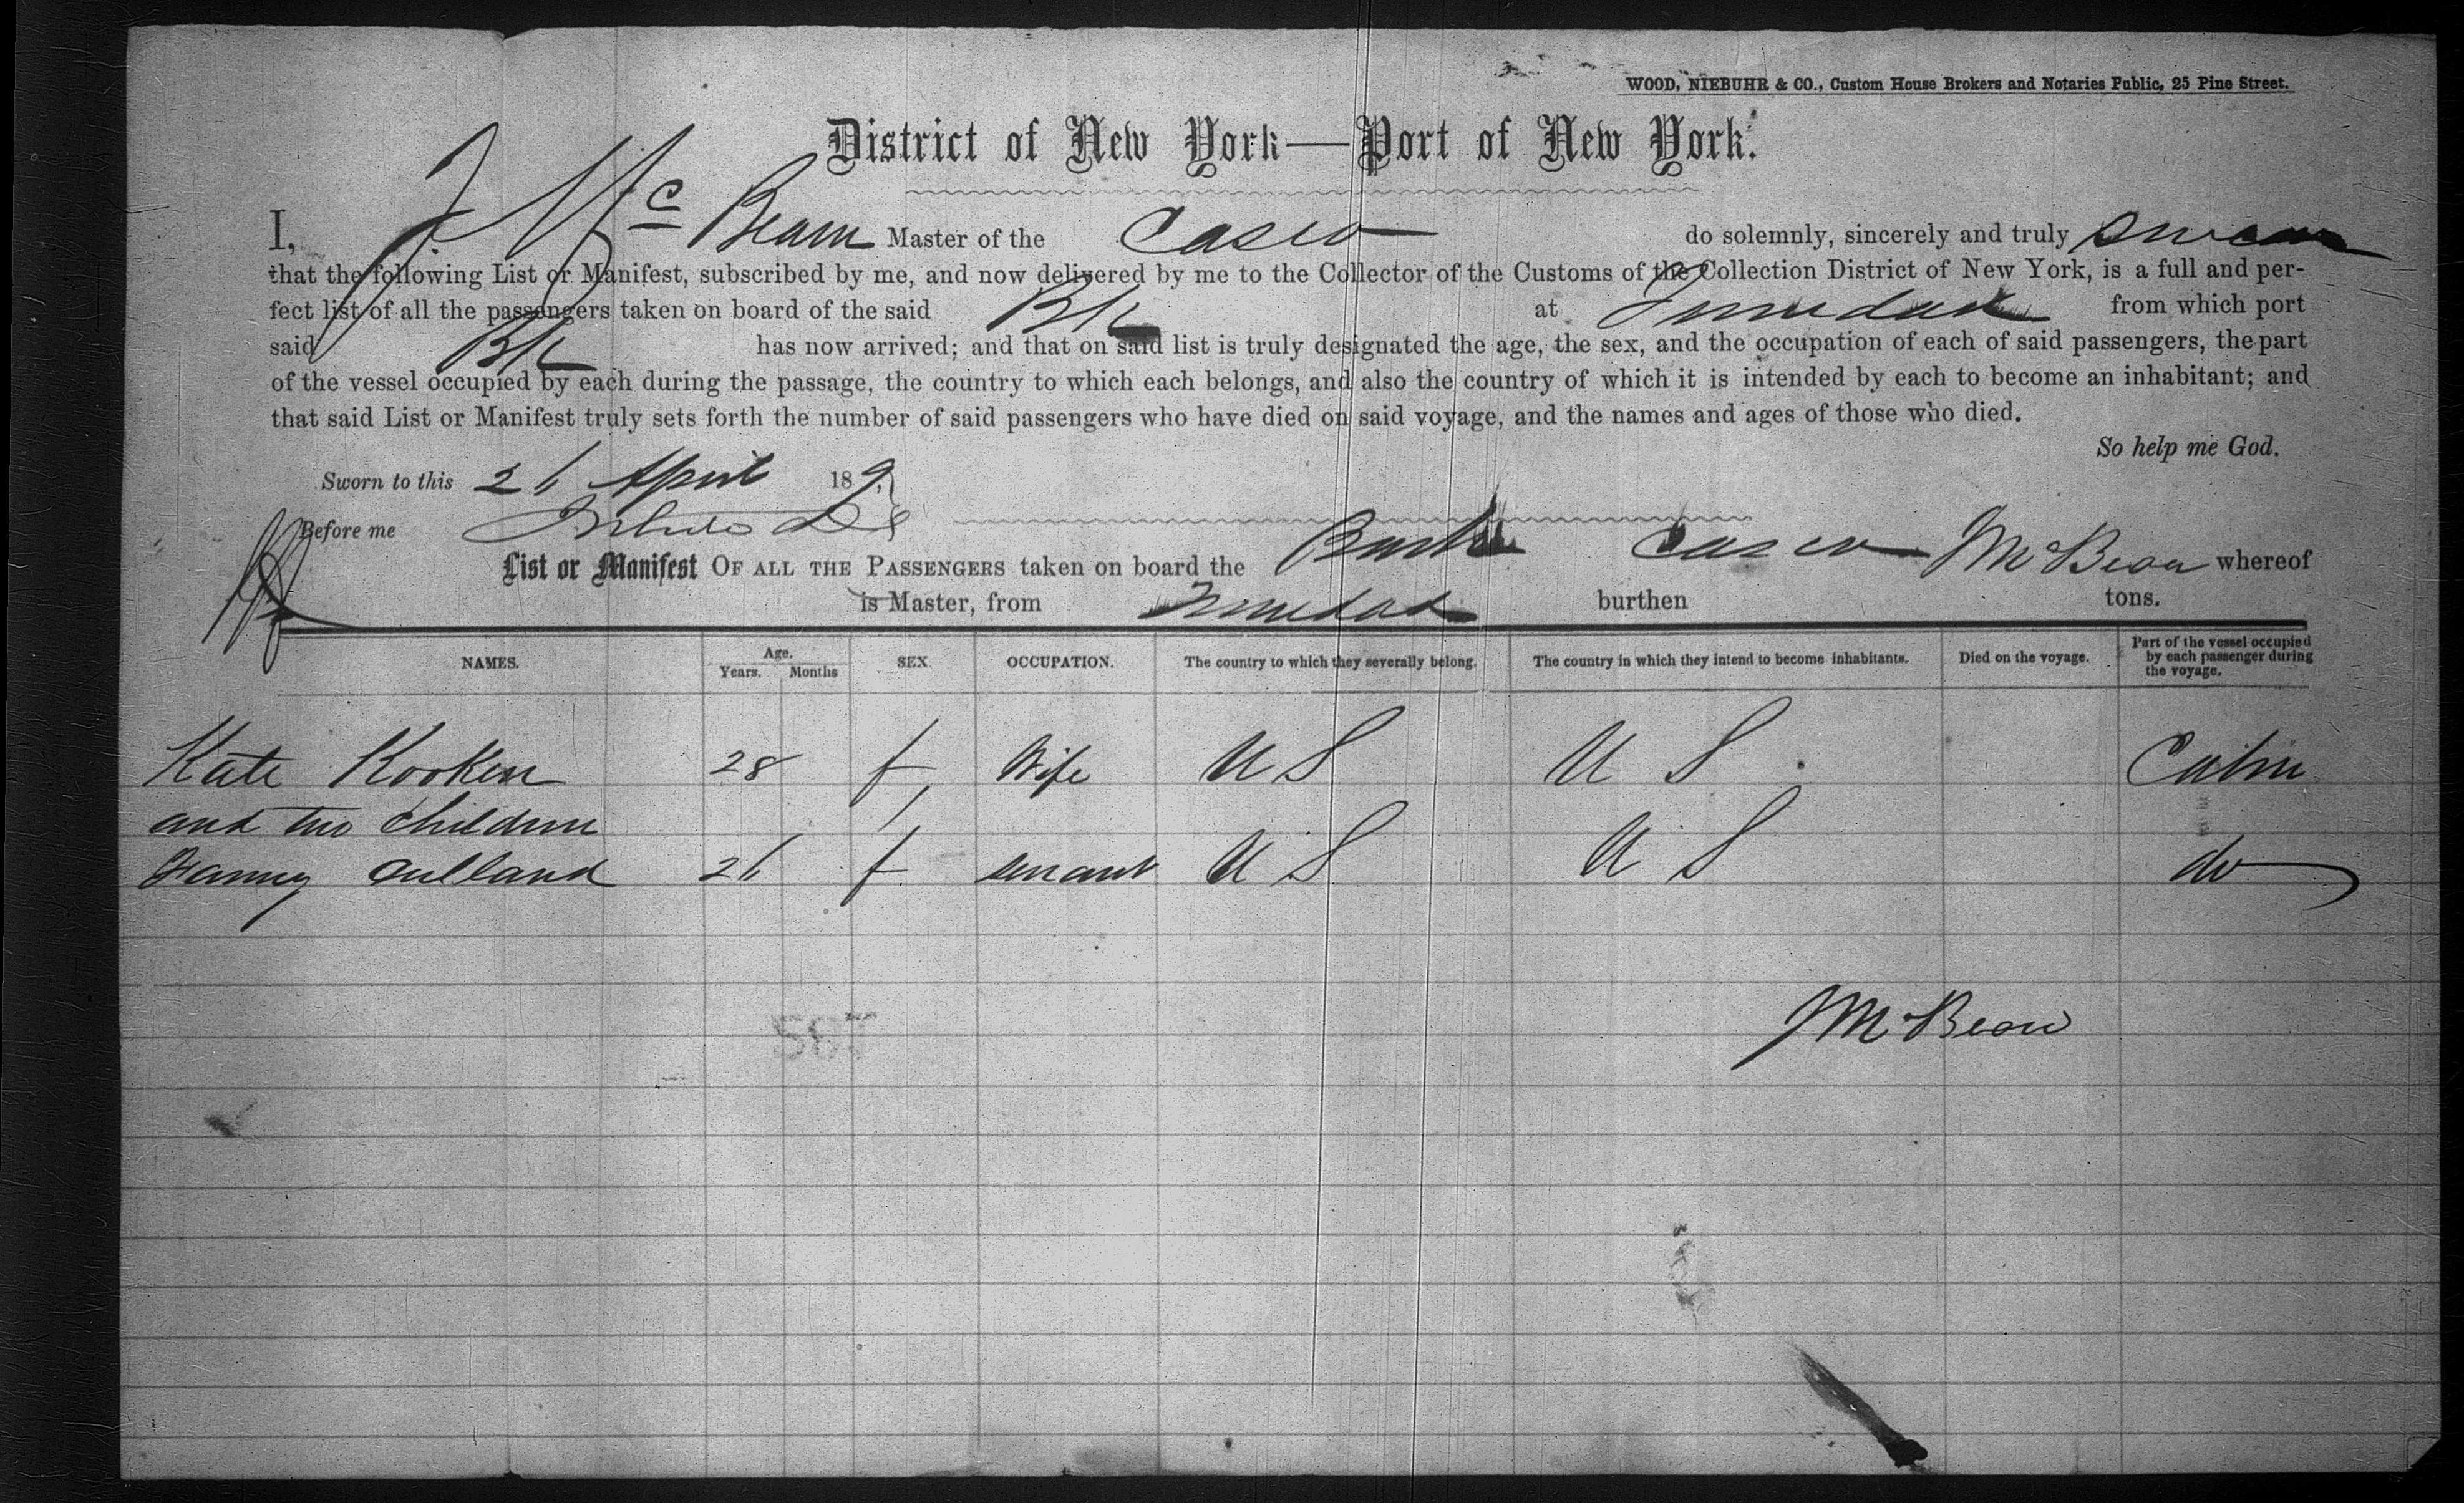 WOOD, NIEBUHR & CO., Custom House Brokers and Notaries Public, 25 Pine Street.
District of New York—Port of New York.
I, J Mc Bean Master of the Casco do solemnly, sincerely and truly swear
that the following List or Manifest, subscribed by me, and now delivered by me to the Collector of the Customs of the Collection District of New York, is a full and per-
fect list of all the passengers taken on board of the said Bk at Trinidad from which port
said Bk has now arrived; and that on said list is truly designated the age, the sex, and the occupation of each of said passengers, the part
of the vessel occupied by each during the passage, the country to which each belongs, and also the country of which it is intended by each to become an inhabitant; and
that said List or Manifest truly sets forth the number of said passengers who have died on said voyage, and the names and ages of those who died.
So help me God.
Sworn to this 26 April 189
Before me
List or Manifest OF ALL THE PASSENGERS taken on board the Bark Casco McBean whereof
is Master, from Trinidad burthen tons.
NAMES. Age. Years. Months SEX. OCCUPATION. The country to which they severally belong. The country in which they intend to become inhabitants. Died on the voyage. Part of the vessel occupied by each passenger during the voyage.
Kate Kooken 28 f Wife U S U S. Cabin
and two children
Fanny Culland 26 f servant U S U S do
McBean
567